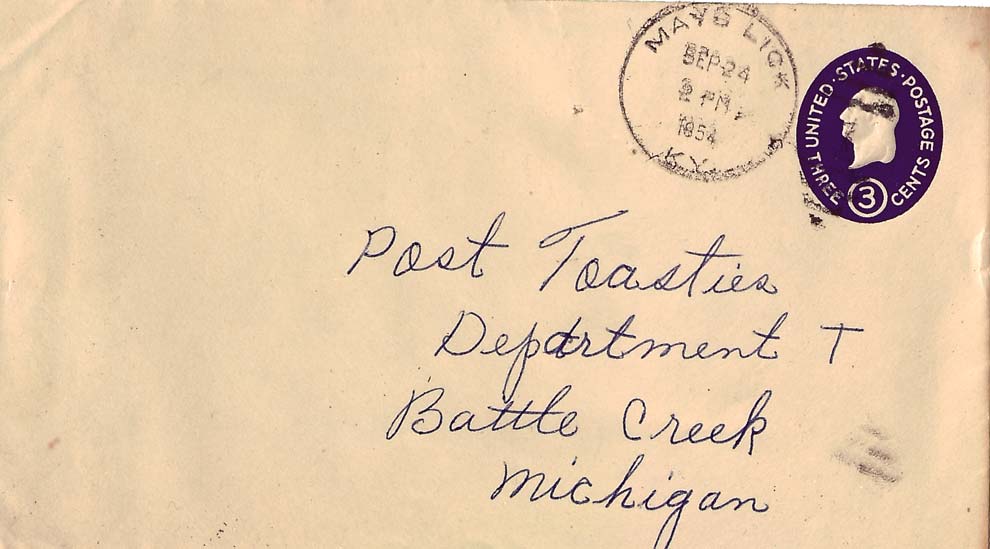 MAYS LICK
SEP 24
2 PM
1954
KY.
UNITED·STATES·POSTAGE
THREE 3 CENTS
Post Toasties
Department T
Battle Creek
Michigan